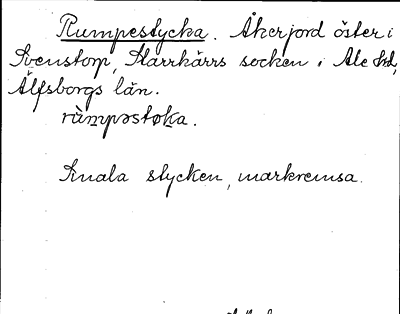 Rumpestycka. Åkerjord öster i
Svenstorp, Starrkärrs socken i Ale hd,
Älfsborgs län.
ràm̥pəstøka.
Smala stycken, markremsa.